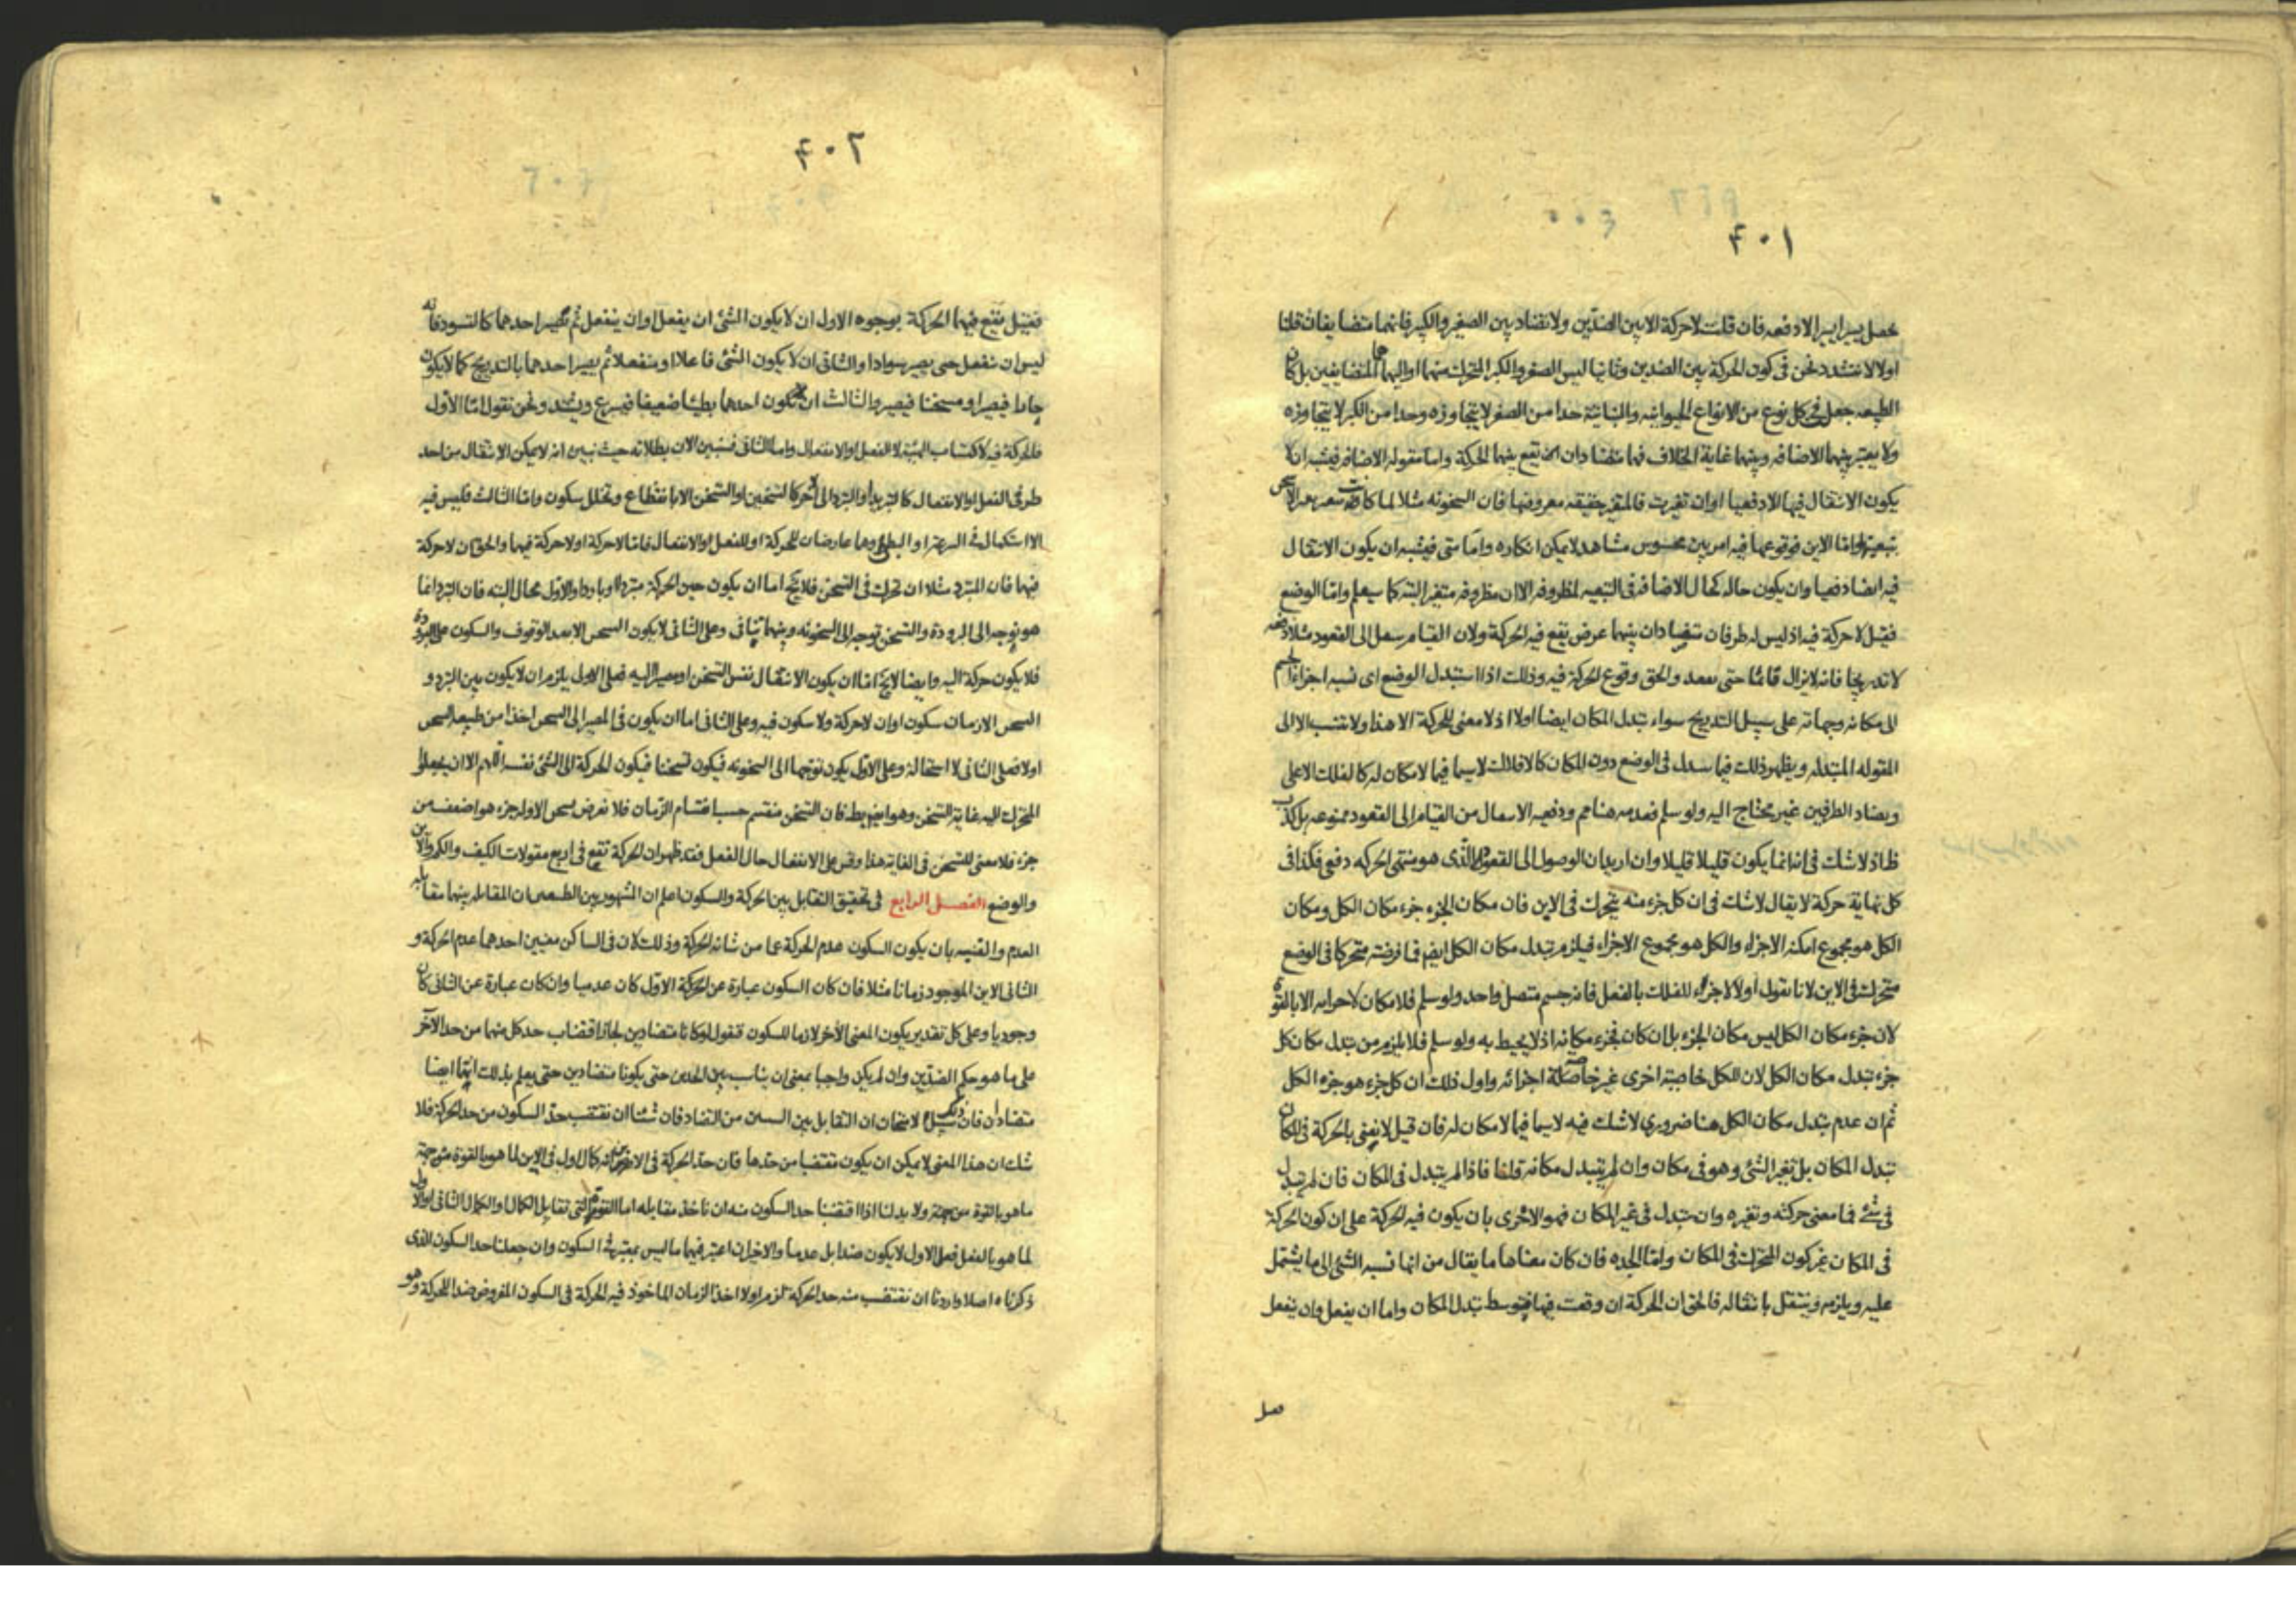 ۴۰۱
يحصل يسيرا يسيرا لا دفعه فان قلت لا حركة الا بين الضدّين ولا تضاد بين الصغير والكبير فانهما متضايفان قلنا
اولا لا نتشدد نحن في كون الحركة بين الضدين وثانيا ليس الصغر والكبر المتحرك منهما او اليهما هما المتضايفين بل كان
الطبيعه جعل في كل نوع من الانواع الحيوانيه والنباتية حدا من الصغر لا يتجاوزه وحدا من الكبر لا يتجاوزه
ولا يعتبر بينهما الاضافه وبينهما غاية الخلاف فهما متضادان اذن تقع بينهما الحركة واما مقوله الاضافه فيشبه ان لا
يكون الانتقال فيها الا دفعيا او ان تغيرت فالمتغير حقيقه معروضها فان السخونه مثلا لما كانت
بتبعيتها وامّا الاين فوقوعها فيه امر بيّن محسوس مشاهد لا يمكن انكاره وامّا متى فيشبه ان يكون الانتقال
فيه ايضا دفعيا وان يكون حاله كحال الاضافه في التبعيه لمظروفه الا ان مظروفه متغير البته كما سيعلم وامّا الوضع
فقيل لا حركة فيه اذ ليس له طرفان متضادان بينهما عرض تقع فيه الحركة ولان القيام سعل الى القعود مثلا دفعه
لا تدريجا فانه لا يزال قائما حتى يقعد والحق وقوع الحركة فيه وذلك اذا استبدل الوضع اى نسبه اجزاء الجسم
الى مكانه وجهاته على سبيل التدريج سواء تبدل المكان ايضا اولا اذ لا معنى للحركة الا هذا ولا تنسب الا الى
المقوله المتبدله ويظهر ذلك فيما سدل في الوضع دون المكان كالافلاك لا سيما فيما لا مكان له كالفلك الاعلى
وتضاد الطرفين غير محتاج اليه ولو سلم فعدمه هنا مم ودفعيه الاسعال من القيام الى القعود ممنوعه بل كذب
ظ اذ لا شك في انه انما يكون قليلا قليلا وان اريد ان الوصول الى القعود الذى هو منتهى الحركه دفعى فكذا في
كل نهاية حركة لا يقال لا شك في ان كل جزء منه يتحرك في الاين فان مكان الجزء جزء مكان الكل ومكان
الكل هو مجموع امكنه الاجزاء والكل هو مجموع الاجزاء فيلزم تبدل مكان الكل ايضا فما فرضته متحركا في الوضع
متحرك في الاين لانا نقول أولا لا اجزاء للفلك بالفعل فانه جسم متصل واحد ولو سلم فلا مكان لاجزائه الا بالقوة
لان جزء مكان الكل ليس مكان الجزء بل ان كان فجزء مكانه اذ لا يحيط به ولو سلم فلا يلزم من تبدل مكان كل
جزء تبدل مكان الكل لان للكل خاصية اخرى غير خاصة اجزائه واول ذلك ان كل جزء هو جزء الكل
ثم ان عدم تبدل مكان الكل هنا ضروري لا شك فيه لا سيما فيما لا مكان له فان قيل لا نعنى بالحركة في المكان
تبدل المكان بل تغير الشئ وهو في مكان وان لم يتبدل مكانه قلنا فاذا لم يتبدل في المكان فان لم يتبدل
في شئ فما معنى حركته وتغيره وان تبدل في غير المكان فهو الاحرى بان يكون فيه الحركة على ان كون الحركة
في المكان غير كون المتحرك في المكان وامّا الجده فان كان معناها ما يقال من انها نسبه الشئ الى ما يشتمل
عليه ويلزمه وينتقل بانتقاله فالحق ان الحركة ان وقعت فيها فبتوسط تبدل المكان واما ان يفعل وان ينفعل
۴۰۲
فقيل تقع فيهما الحركة بوجوه الاول ان لا يكون الشئ ان يفعل او ان ينفعل ثم يصير احدهما كالتسود فانه
ليس ان ينفعل حتى يصير سوادا والثانى ان لا يكون الشئ فاعلا او منفعلا ثم يصير احدهما بالتدريج كما لا يكون
حارا فيصير او مسخنا فيصير والثالث ان يكون احدهما بطيئا ضعيفا فيسرع ويشتد ونحن نقول امّا الأول
فالحركة فيه لاكتساب الهيئة لا الفعل او الانفعال واما الثانى فسنبين الان بطلانه حيث نبين انه لا يمكن الانتقال من احد
طرفى الفعل او الانفعال كالتبريد او التبرد الى الآخر كالتسخين او التسخن الا بانقطاع وتخلل سكون وامّا الثالث فليس فيه
الا استكمال في السرعه او البطؤ وهما عارضان للحركة او للفعل او الانفعال فامّا لا حركة اولا حركة فيهما والحق ان لا حركة
فيها فان المتبرد مثلا ان تحرك في التسخن فلا يخ اما ان يكون حين الحركة متبردا او باردا والاول محال البته فان التبرد انما
هو توجه الى البرودة والتسخن توجه الى السخونه وبينهما تنافى وعلى الثانى لا يكون السخن الا بعد الوقوف والسكون على البرودة
فلا يكون حركة اليه وايضا لا يخ امّا ان يكون الانتقال نفس التسخن او مصيرا اليه فعلى الاول يلزم ان لا يكون بين التبرد و
السخن الا زمان سكون او ان لا حركة ولا سكون فيه وعلى الثانى اما ان يكون في المصير الى السخن اخذا من طبيعه السخن
اولا فعلى الثانى لا استحالة وعلى الاول يكون توجها الى السخونه فيكون تسخنا فيكون الحركة الى الشئ نفسه اللهم الا ان يجعلوا
المتحرك اليه غاية التسخن وهو ايضا بط فان التسخن منقسم حسب انقسام الزمان فلا نعرض سخن الا وله جزء هو اضعف من
جزء فلا معنى للتسخن في الغاية هذا وقس على الانفعال حال الفعل فقد ظهر ان الحركة تقع في اربع مقولات الكيف والكم والاين
والوضع الفصل الرابع في تحقيق التقابل بين الحركة والسكون اعلم ان المشهور بين الطبيعين ان المقابله بينهما مقابله
العدم والقنيه بان يكون السكون عدم الحركة عما من شانه الحركة وذلك لان في الساكن معنيين احدهما عدم الحركة و
الثانى الاين الموجود زمانا مثلا فان كان السكون عبارة عن الحركة الاول كان عدميا وان كان عبارة عن الثانى كان
وجوديا وعلى كل تقدير يكون المعنى الاخر لازما للسكون فنقول لو كانا متضادين لجاز اقتضاب حد كل منهما من حد الآخر
على ما هو حكم الضدّين وان لم يكن واجبا بمعنى ان يناسب بين الحدين حتى يكونا متضادين حتى يعلم بذلك انهما ايضا
متضادان فان ذلك سبيل لامتحان ان التقابل بين السين من التضاد فان شئنا ان نقتضب حدّ السكون من حد الحركة فلا
شك ان هذا المعنى لا يمكن ان يكون مقتضبا من حدها فان حد الحركة في الاين انه كمال اول في الاين لما هو بالقوة من جهة
ما هو بالقوة من جهة ولا بد لنا اذا اقتضبنا حد السكون منه ان ناخذ مقابله اما القوة التى تقابل الكمال والكمال الثانى او الاول
لما هو بالفعل فعلى الاول لا يكون ضدا بل عدما والاخيران اعتبر فيهما ما ليس يعتبر في السكون وان جعلنا حد السكون الذى
ذكرناه اصلا واردنا ان نقتضب منه حد الحركة لزم اولا اخذ الزمان الماخوذ فيه الحركة في السكون المفروض ضدا للحركة وهو